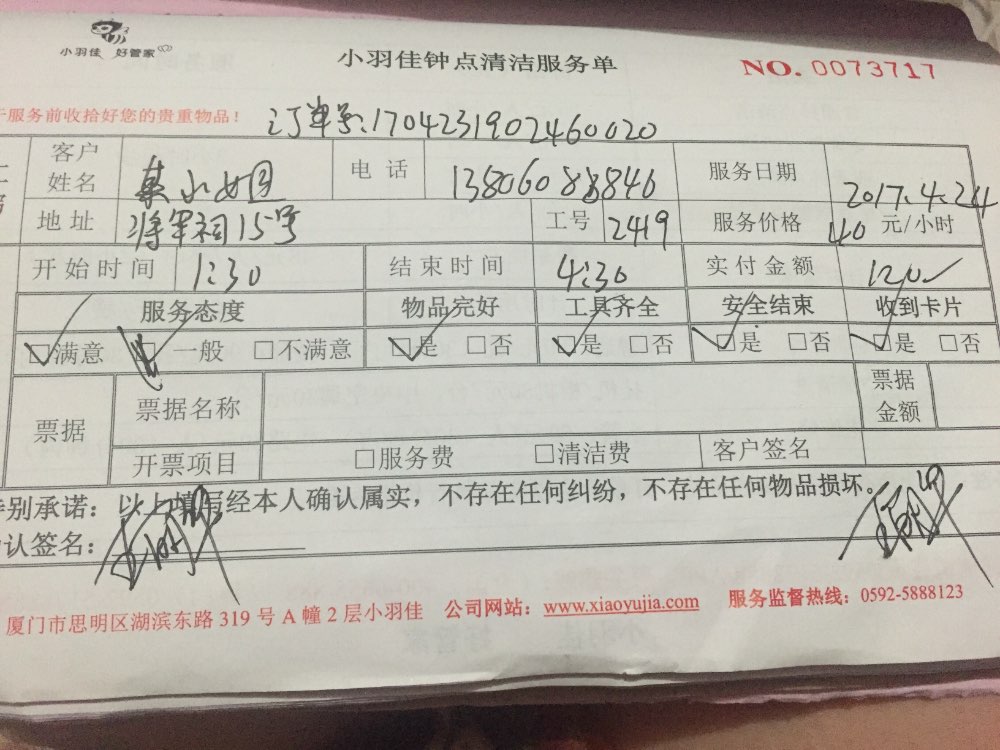 小羽佳 好管家
小羽佳钟点清洁服务单
NO. 0073717
服务前收拾好您的贵重物品！
订单号：1704231902460020
客户姓名 小姐 电话 13806088846 服务日期 2017.4.24
地址 将军祠15号 工号 2419 服务价格 40 元/小时
开始时间 1:30 结束时间 4:30 实付金额 120
服务态度 物品完好 工具齐全 安全结束 收到卡片
☑满意 ☑一般 □不满意 ☑是 □否 ☑是 □否 ☑是 □否 ☑是 □否
票据 票据名称 票据金额
开票项目 □服务费 □清洁费 客户签名
别承诺：以上填写经本人确认属实，不存在任何纠纷，不存在任何物品损坏。
认签名：
厦门市思明区湖滨东路 319 号 A 幢 2 层小羽佳 公司网站：www.xiaoyujia.com 服务监督热线：0592-5888123